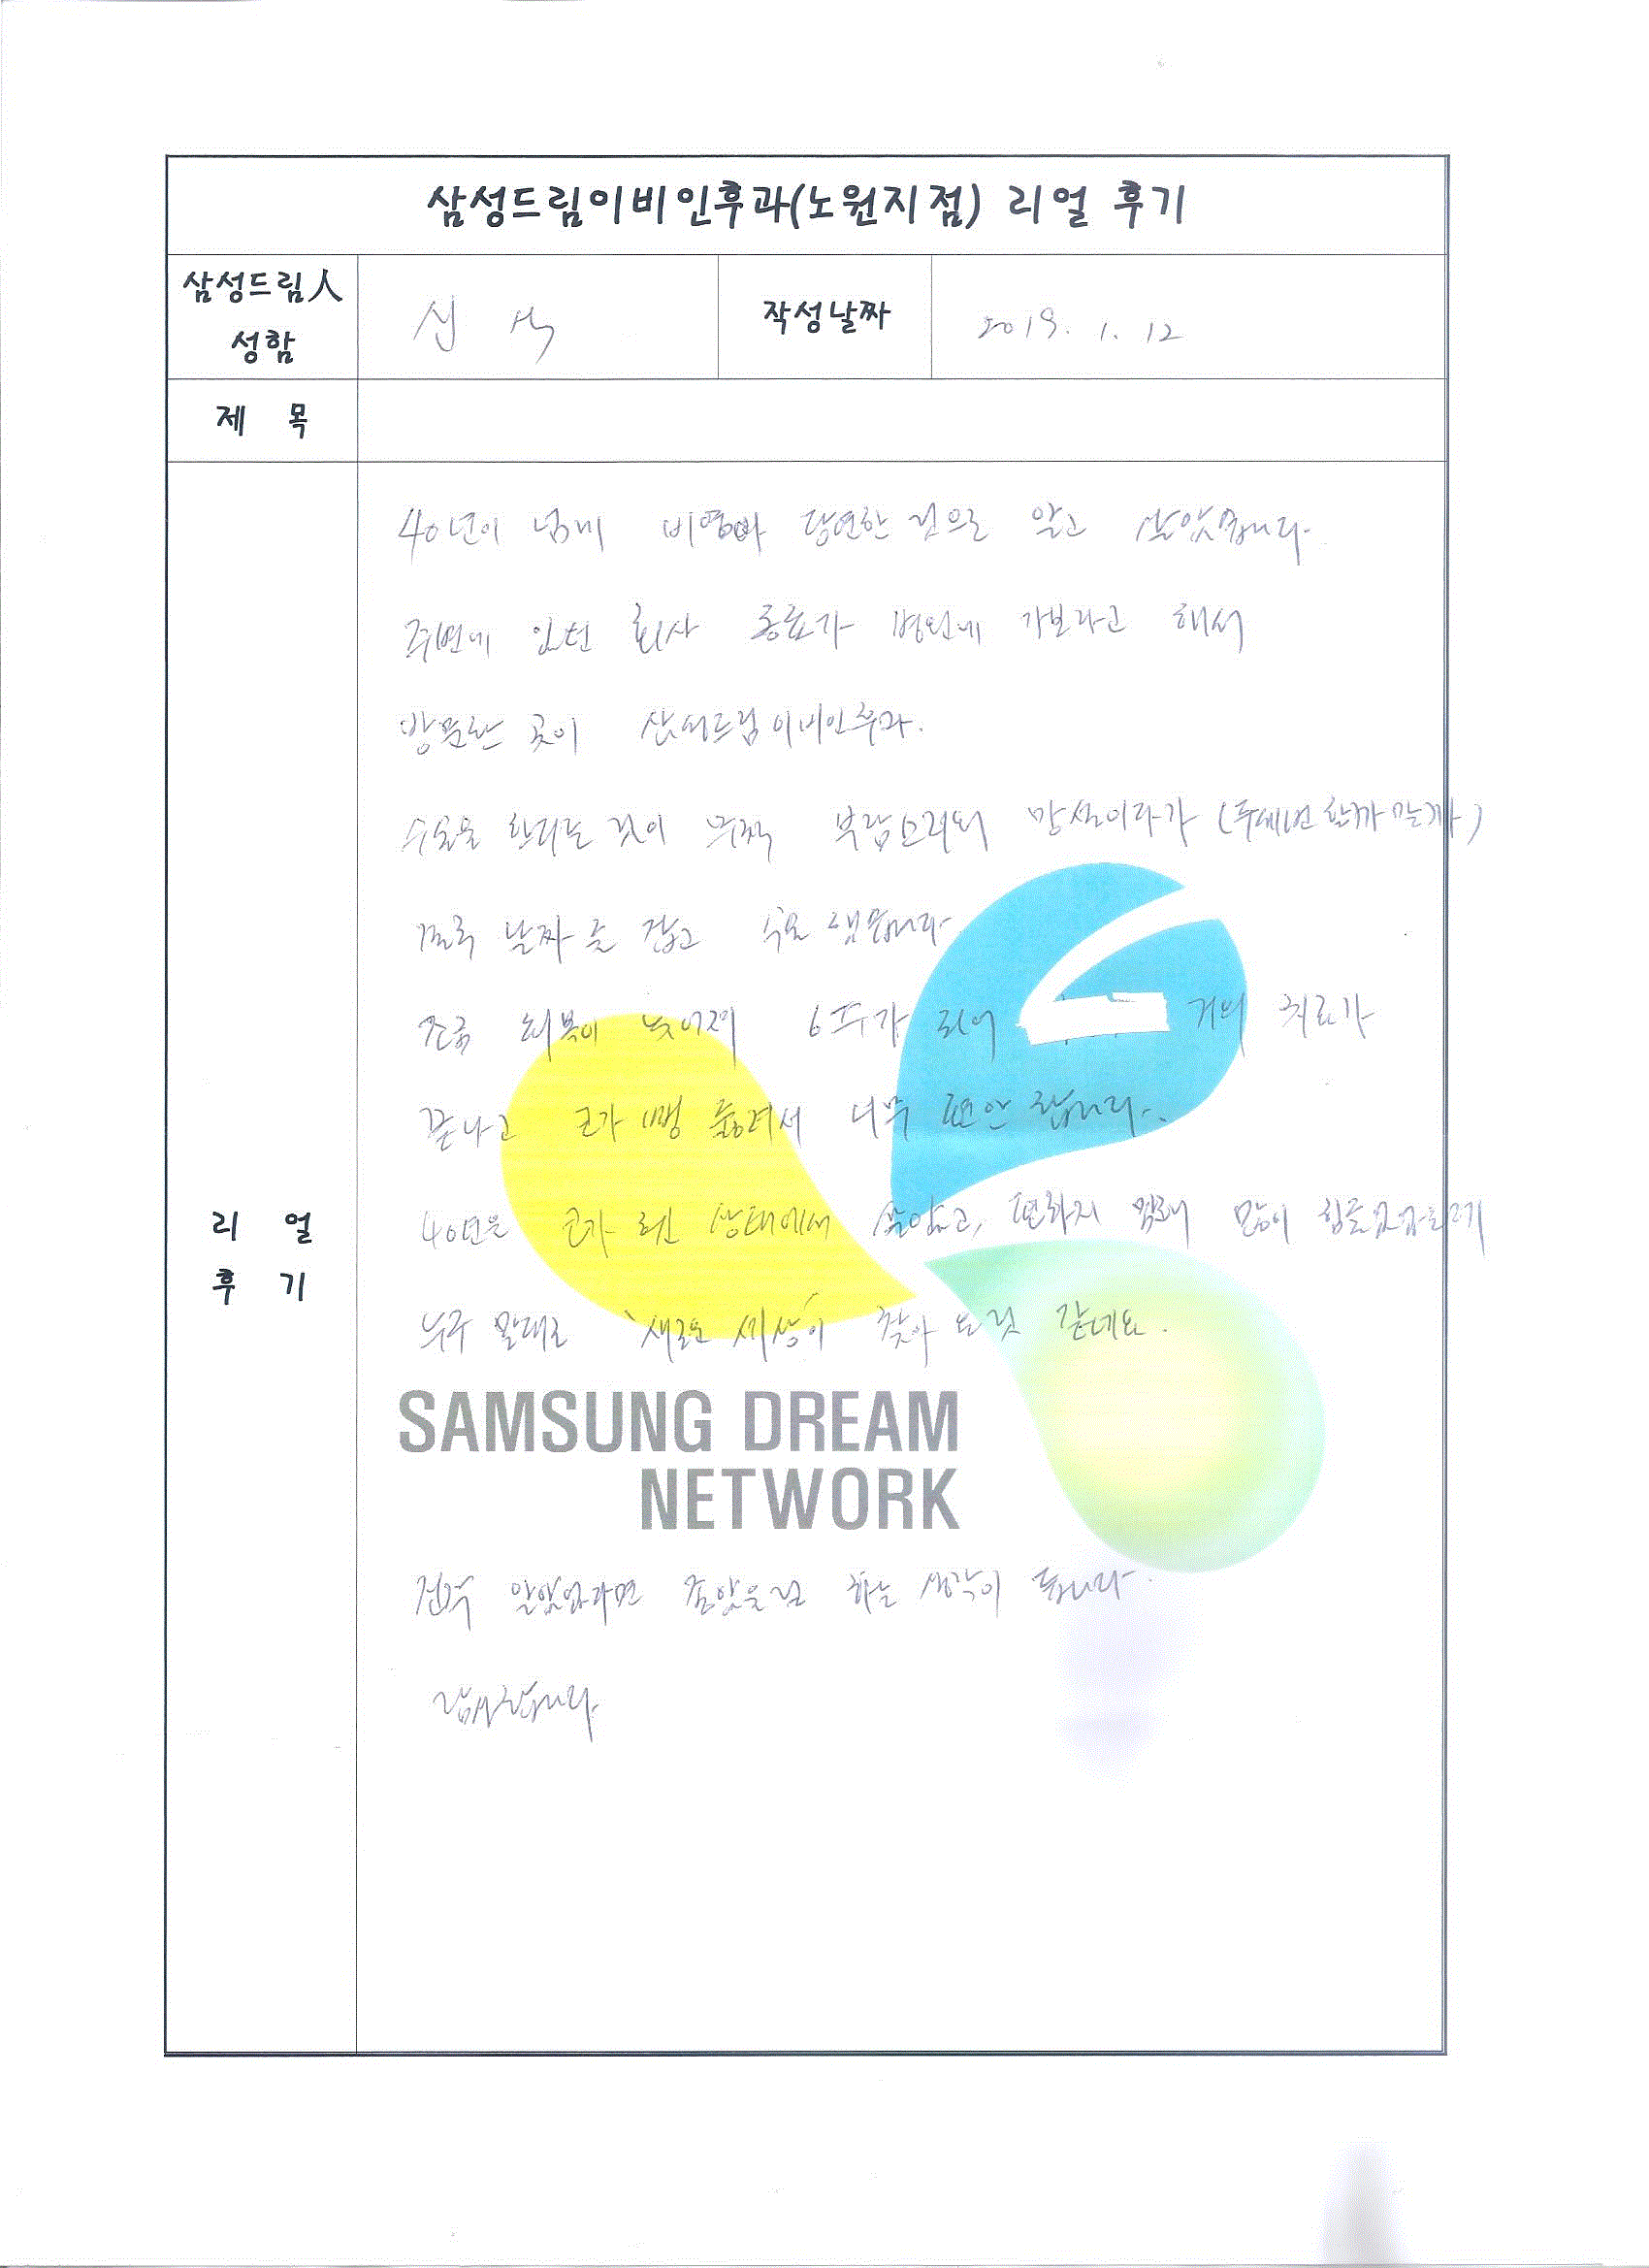 삼성드림이비인후과(노원지점) 리얼 후기
삼성드림人
성함
신
작성날짜
2019. 1. 12
제 목
40년이 넘게 비염이 당연한 것으로 알고 살았습니다.
주변에 있던 회사 동료가 병원에 가보라고 해서
방문한 곳이 삼성드림이비인후과.
수술을 한다는 것이 무척 부담스러워 망설이다가 (두세번 할까 말까)
결국 날짜를 잡고 수술 했습니다.
조금 회복이 늦어져 6주가 되어 거의 치료가
끝나고 코가 뻥 뚫려서 너무 편안 합니다.
40년은 코가 헌 상태에서 살았고, 편하지 못해 많이 힘들었
누구 말대로 '새로운 세상'이 찾아 온 것 같네요.
리 얼
후 기
SAMSUNG DREAM
NETWORK
진작 알았었다면 좋았을걸 하는 생각이 듭니다.
감사합니다